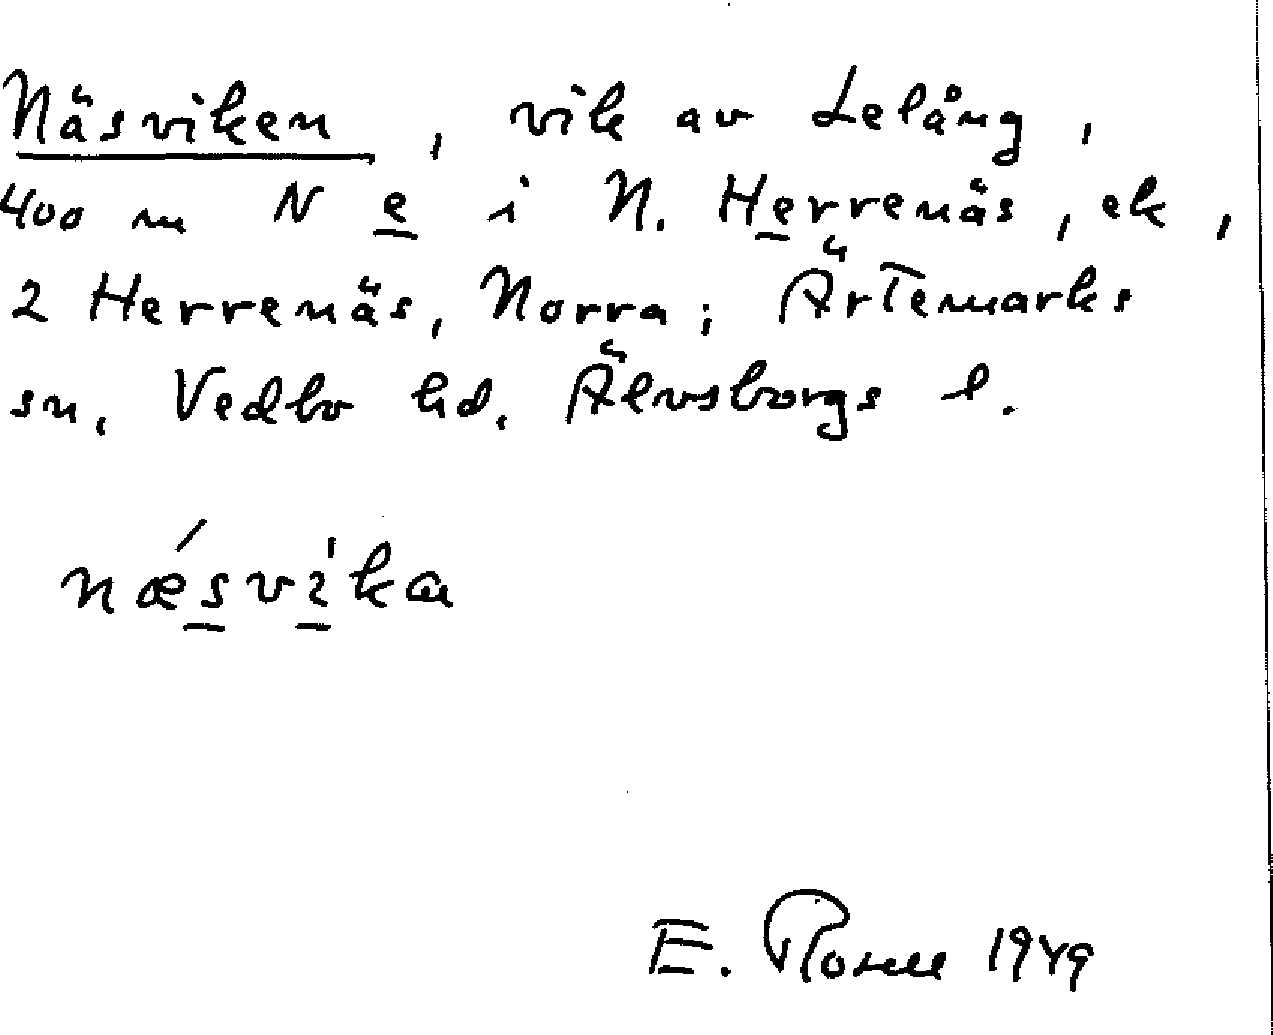 Näsviken, vik av Lelång,
400 m N e i N. Herrenäs, ek,
2 Herrenäs, Norra; Ärtemarks
sn, Vedbo hd, Älvsborgs l.
nǽsvìka
E. Rosell 1949